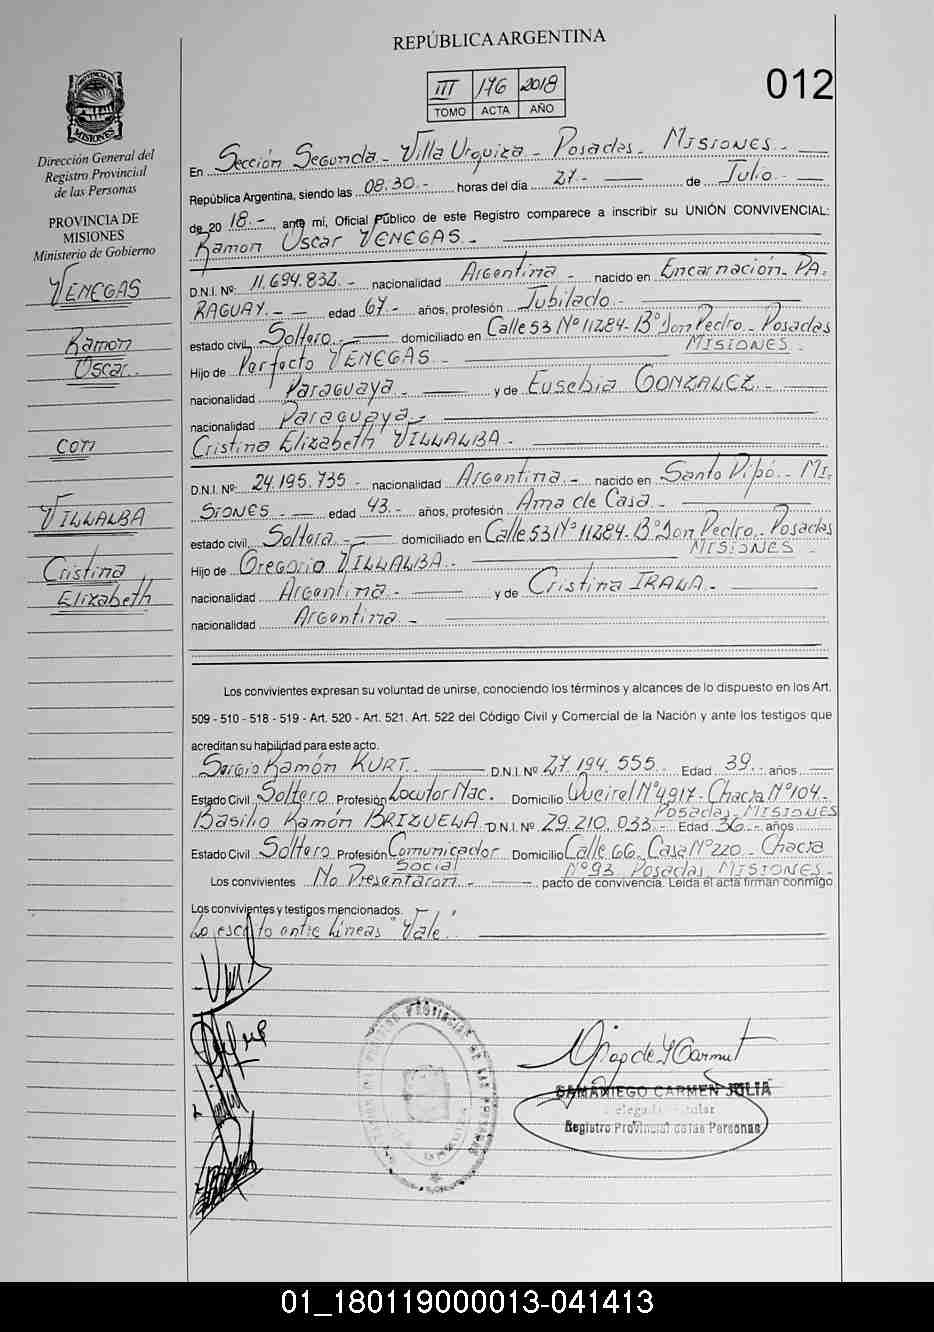 REPÚBLICA ARGENTINA
012
III 176 2018
TOMO ACTA AÑO
PROVINCIA DE MISIONES
Dirección General del
Registro Provincial
de las Personas
PROVINCIA DE
MISIONES
Ministerio de Gobierno
VENEGAS
Ramon
Oscar
con
VILLALBA
Cristina
Elizabeth
En Sección Segunda - Villa Urquiza - Posadas - MISIONES -
República Argentina, siendo las 08:30 - horas del día 27 - de Julio -
de 20 18 -, ante mí, Oficial Público de este Registro comparece a inscribir su UNIÓN CONVIVENCIAL:
Ramon Oscar VENEGAS -
D.N.I. Nº: 11.694.832 - nacionalidad Argentina - nacido en Encarnación PA-
RAGUAY - edad 67 - años, profesión Jubilado -
estado civil Soltero - domiciliado en Calle 53 Nº 11284 - Bº Don Pedro - Posadas
MISIONES -
Hijo de Perfecto VENEGAS -
nacionalidad Paraguaya - y de Eusebia GONZALEZ -
nacionalidad Paraguaya -
Cristina Elizabeth VILLALBA -
D.N.I. Nº 24.195.735 - nacionalidad Argentina - nacido en Santo Pipó - MI-
SIONES - edad 43 - años, profesión Ama de Casa -
estado civil Soltera - domiciliado en Calle 53 Nº 11284 - Bº Don Pedro - Posadas
MISIONES -
Hijo de Gregorio VILLALBA -
nacionalidad Argentina - y de Cristina IRALA -
nacionalidad Argentina -
Los convivientes expresan su voluntad de unirse, conociendo los términos y alcances de lo dispuesto en los Art.
509 - 510 - 518 - 519 - Art. 520 - Art. 521. Art. 522 del Código Civil y Comercial de la Nación y ante los testigos que
acreditan su habilidad para este acto.
Sergio Ramón KURT - D.N.I. Nº 27.194.555 - Edad 39 - años
Estado Civil Soltero Profesión Locutor Nac. Domicilio Queirel Nº 4917 - Chacra Nº 104 -
Posadas - MISIONES
Basilio Ramón BRIZUELA - D.N.I. Nº 29.210.033 - Edad 36 - años
Estado Civil Soltero Profesión Comunicador Domicilio Calle 66 Casa Nº 220 - Chacra
Social Nº 93 Posadas MISIONES -
Los convivientes No Presentaron - pacto de convivencia. Leída el acta firman conmigo
Los convivientes y testigos mencionados.
Lo escrito entre Líneas "Vale"
SAMANIEGO CARMEN JULIA
Delegada Titular
Registro Provincial de las Personas
01_180119000013-041413